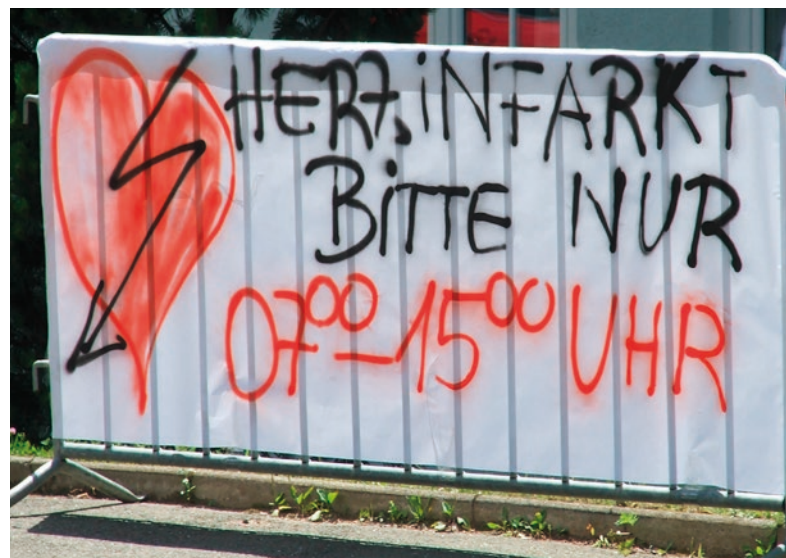 HERZINFARKT
BITTE NUR
07⁰⁰–15⁰⁰ UHR